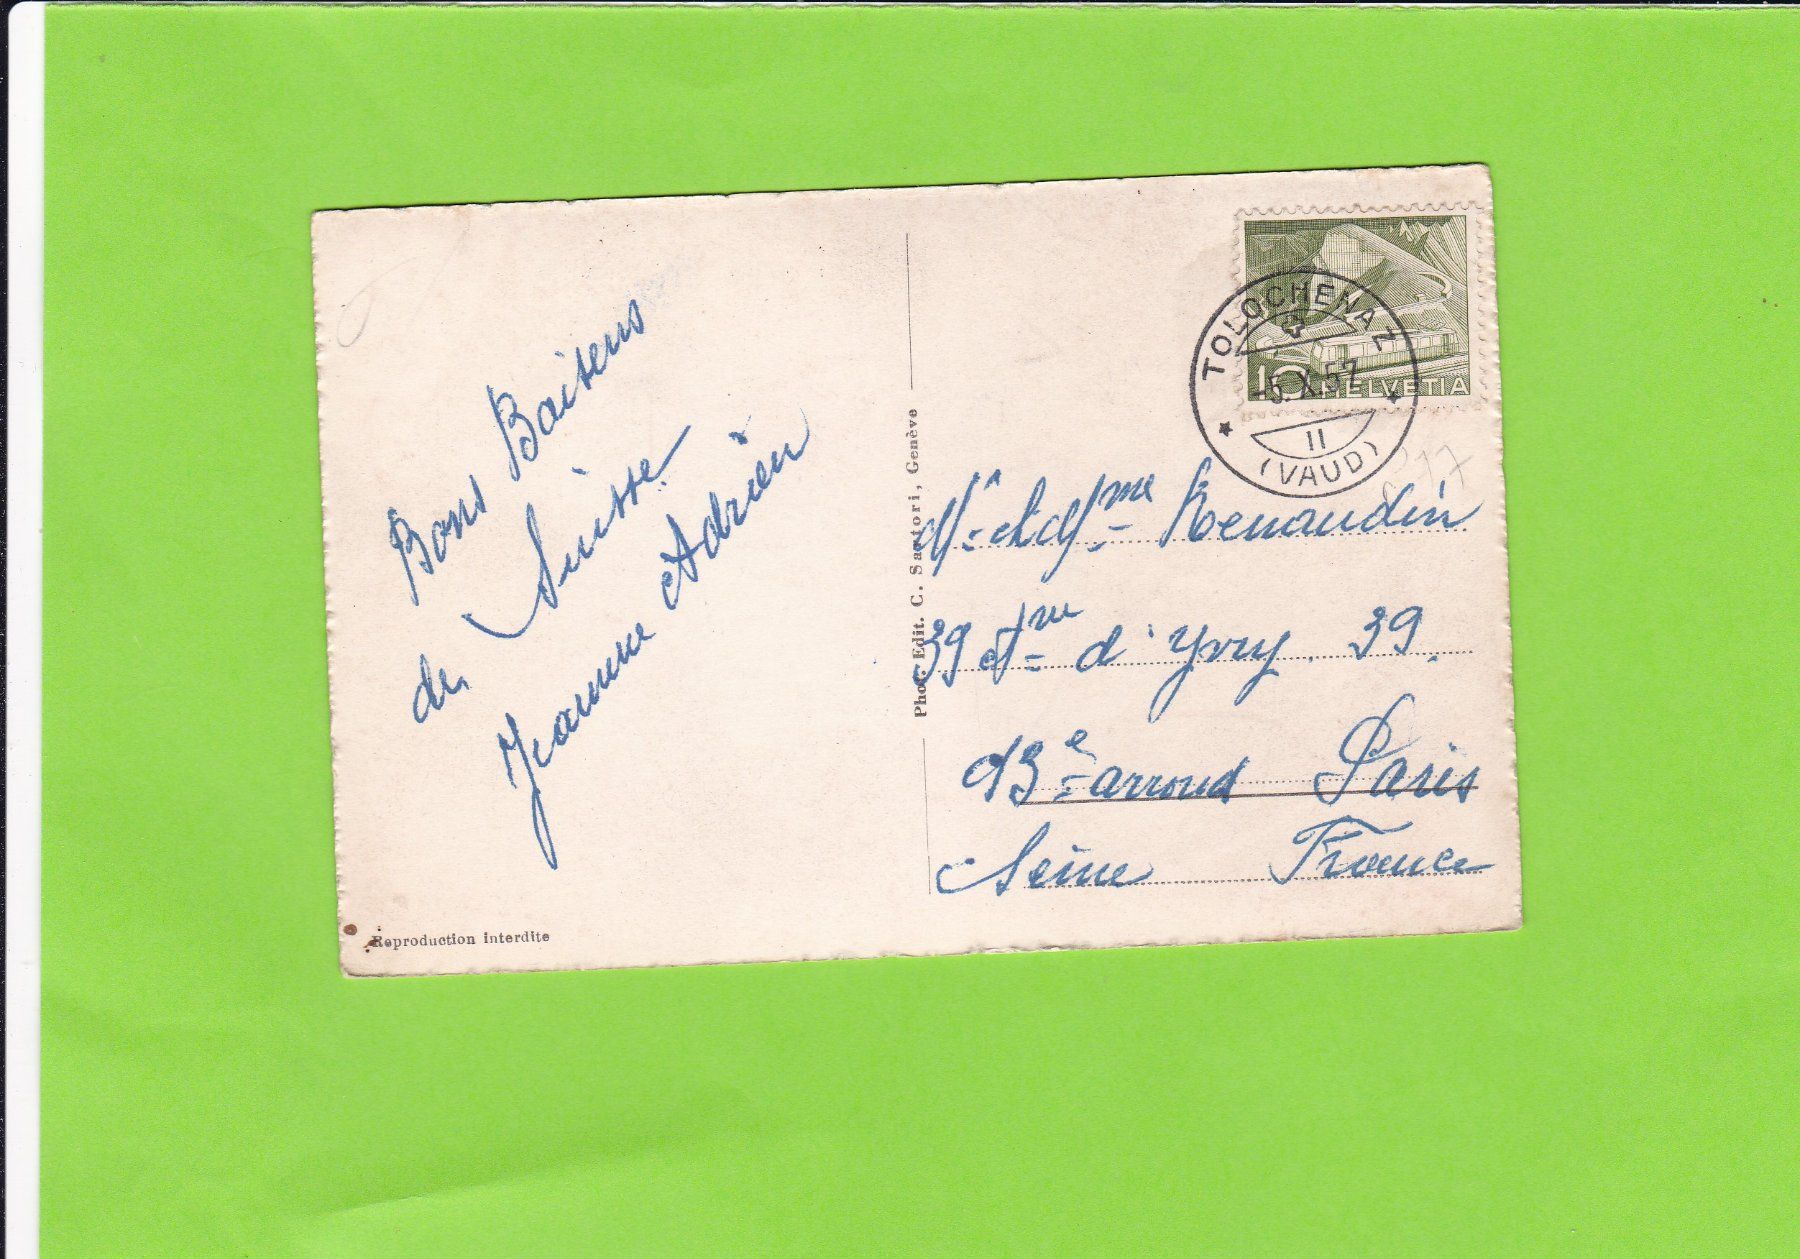 Bons Baisers
de Suisse
Jeanne Adrien
TOLOCHENAZ
-5.X.57
II
(VAUD)
10 HELVETIA
Mr et Mme Renaudin
39 Ave d'Yvry. 39.
13e arrond Paris
Seine France
Phot. Edit. C. Sartori, Genève
Reproduction interdite